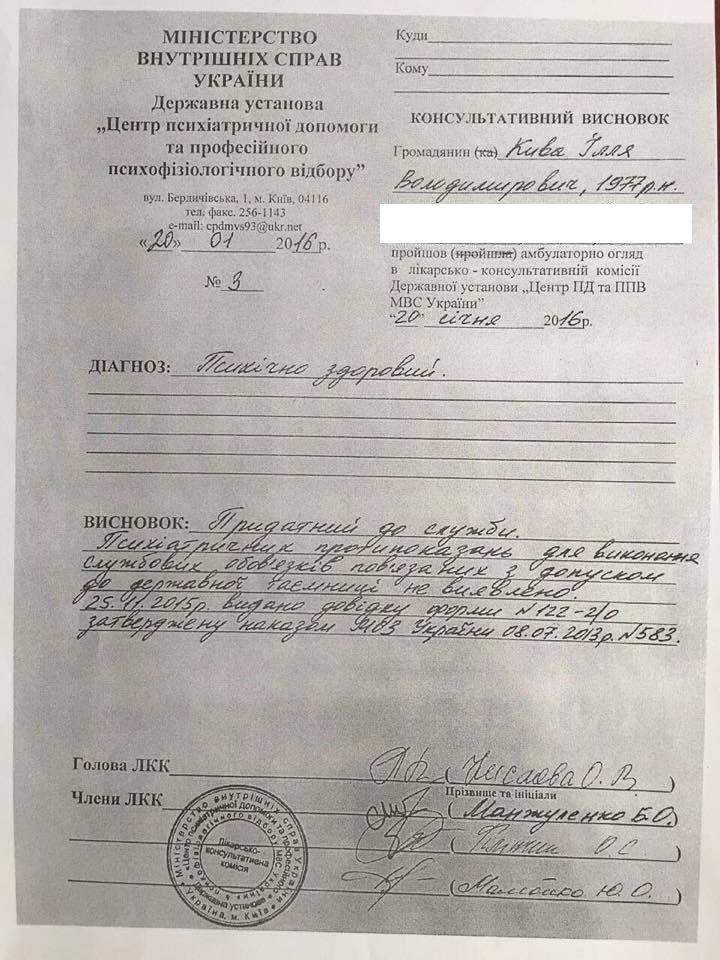 МІНІСТЕРСТВО
ВНУТРІШНІХ СПРАВ
УКРАЇНИ
Державна установа
„Центр психіатричної допомоги
та професійного
психофізіологічного відбору”
вул. Бердичівська, 1, м. Київ, 04116
тел. факс. 256-1143
e-mail: cpdmvs93@ukr.net
«20» 01 2016 р.
№ 3
Куди
Кому
КОНСУЛЬТАТИВНИЙ ВИСНОВОК
Громадянин (ка) Кива Ілля
Володимирович, 1977 р.н.
пройшов (пройшла) амбулаторно огляд
в лікарсько - консультативній комісії
Державної установи „Центр ПД та ППВ
МВС України”
“20” січня 2016р.
ДІАГНОЗ: Психічно здоровий.
ВИСНОВОК: Придатний до служби.
Психіатричних протипоказань для виконання
службових обов'язків пов'язаних з допуском
до державної таємниці не виявлено.
25.11.2015р. видано довідку форми №122-2/о
затверджену наказом МОЗ України 08.07.2013р. №583.
Голова ЛКК ( Числова О. В. )
Прізвище та ініціали
Члени ЛКК ( Манжуленко Б.О. )
( О. С. )
( Ю. О. )
Міністерство внутрішніх справ України
«Центр психіатричної допомоги та професійного
психофізіологічного відбору МВС України»
Державна установа
Лікарсько-
консультативна
комісія
Україна, м. Київ